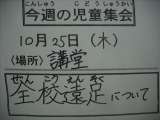 こんしゅう じどうしゅうかい
今週の児童集会
10月25日(木)
(場所) 講堂
ぜんこうえんそく
全校遠足について